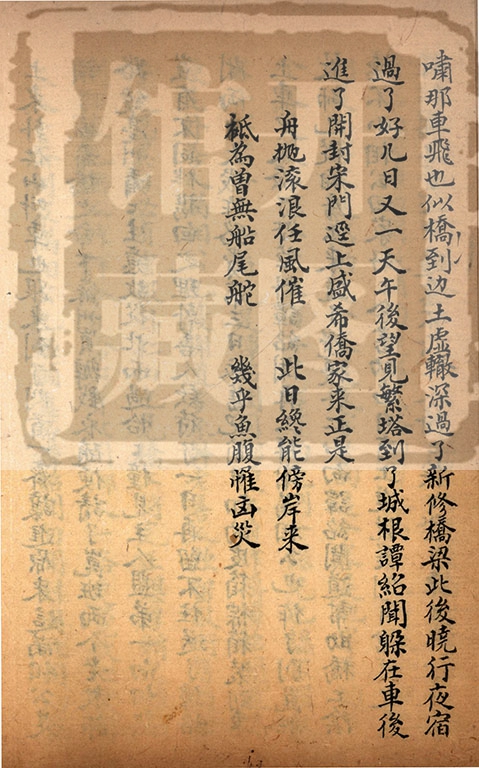 嘯那車飛也似橋到边土虛轍深過了新修橋梁此後曉行夜宿
過了好几日又一天午後望見繁塔到了城根譚紹聞躲在車後
進了開封宋門逕上盛希僑家来正是
舟抛滚浪任風催 此日終能傍岸来
祗為曽無船尾舵 幾乎魚腹罹凶災